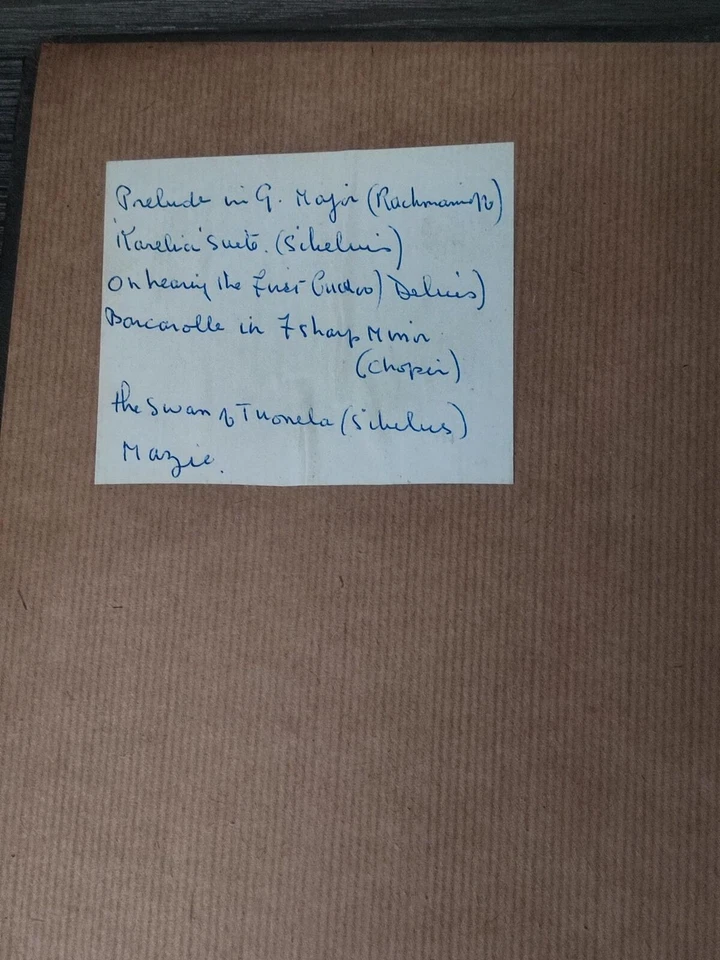 Prelude in G. Major (Rachmaninoff)
'Karelia' Suite. (Sibelius)
On hearing the First Cuckoo) Delius)
Barcarolle in F sharp Minor
(Chopin)
the Swan of Tuonela (Sibelius)
Mazie.